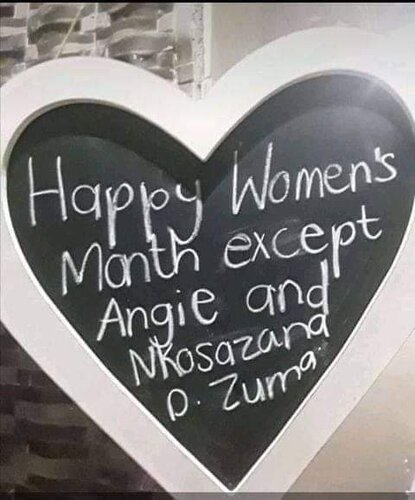 Happy Women's
Month except
Angie and
Nkosazana
D. Zuma.